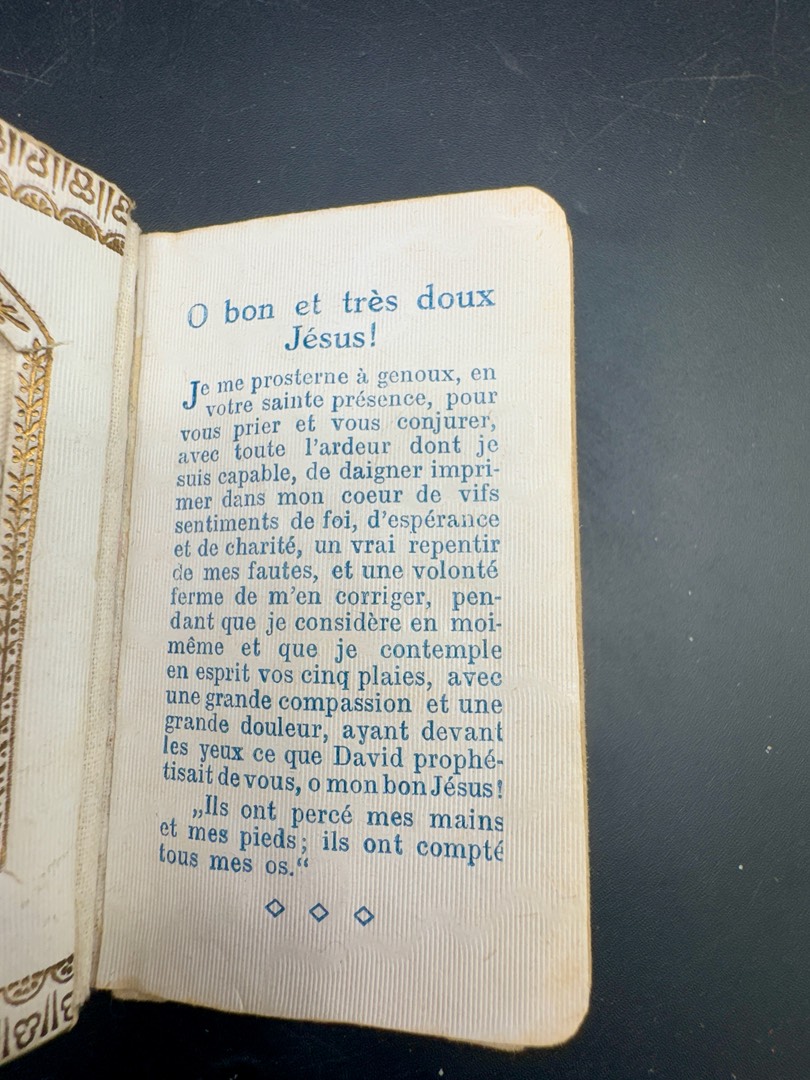 O bon et très doux
Jésus!
Je me prosterne à genoux, en
votre sainte présence, pour
vous prier et vous conjurer,
avec toute l'ardeur dont je
suis capable, de daigner impri-
mer dans mon coeur de vifs
sentiments de foi, d'espérance
et de charité, un vrai repentir
de mes fautes, et une volonté
ferme de m'en corriger, pen-
dant que je considère en moi-
même et que je contemple
en esprit vos cinq plaies, avec
une grande compassion et une
grande douleur, ayant devant
les yeux ce que David prophé-
tisait de vous, o mon bon Jésus!
„Ils ont percé mes mains
et mes pieds; ils ont compté
tous mes os.“